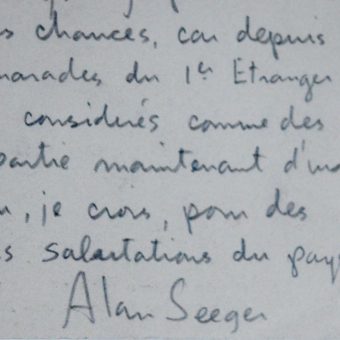 s chances, car depuis
marades du 1er Etranger
considérés comme des
partie maintenant d'un
, je crois, pour des
s salutations du pays
Alan Seeger